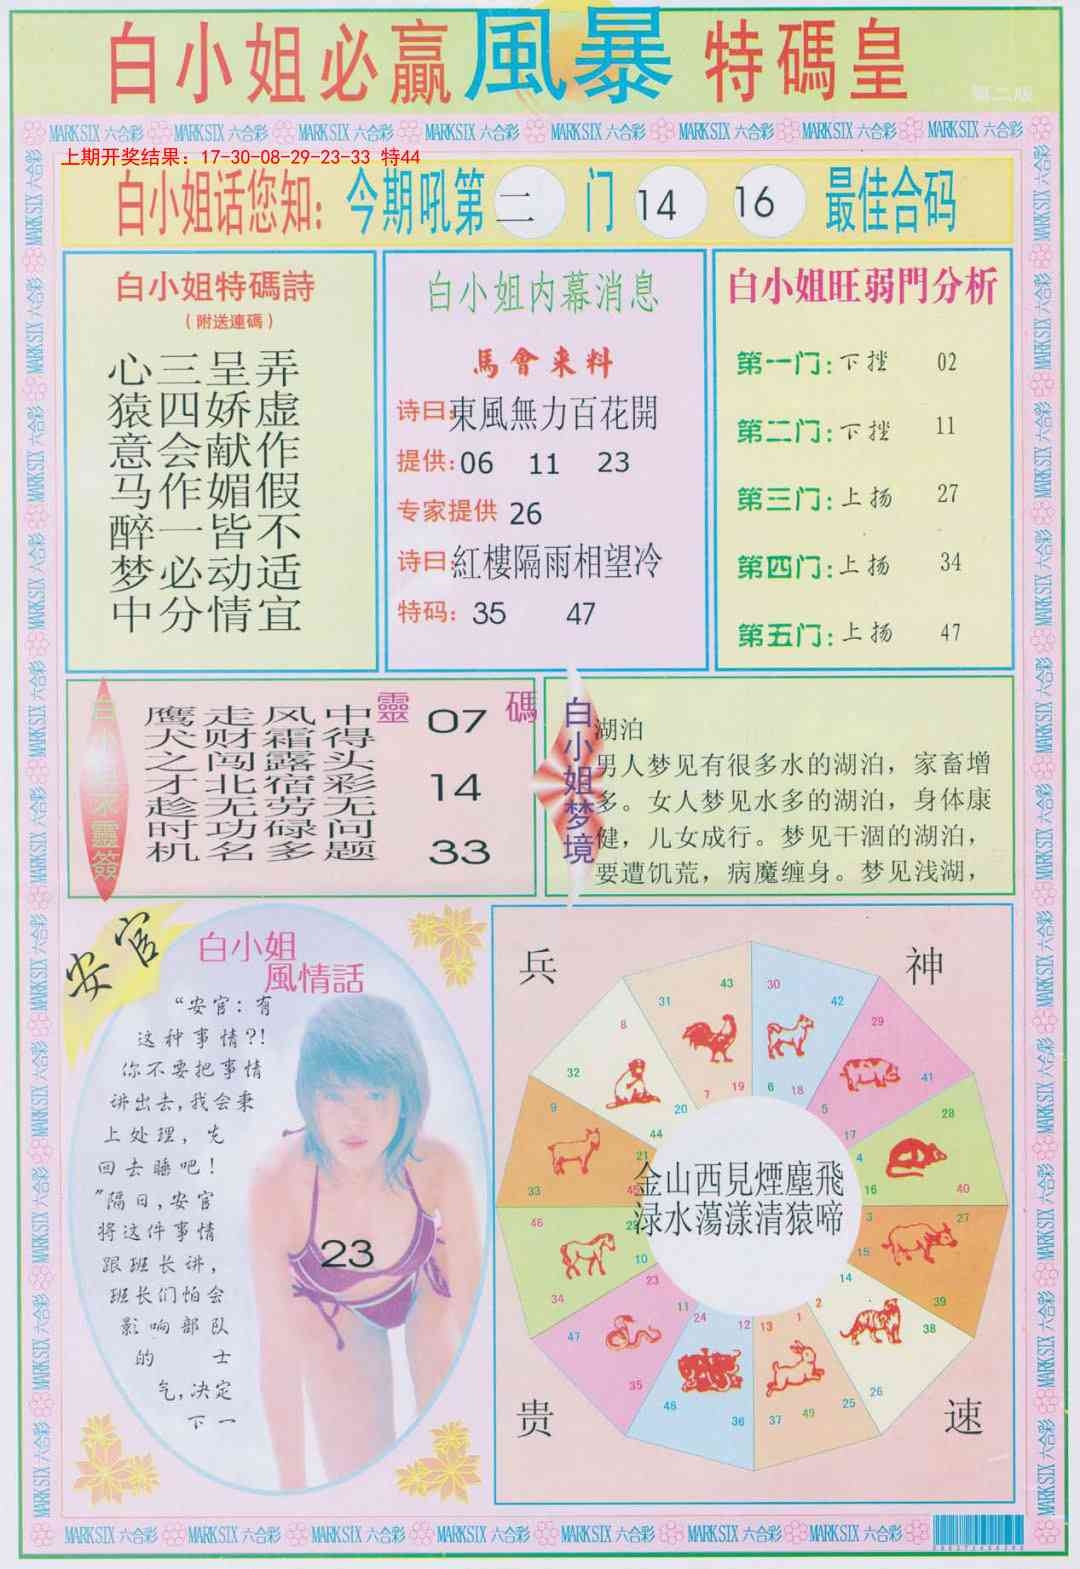 白小姐必贏 風暴 特碼皇
第二版
MARK SIX 六合彩 MARK SIX 六合彩 MARK SIX 六合彩 MARK SIX 六合彩 MARK SIX 六合彩 MARK SIX 六合彩 MARK SIX 六合彩 MARK SIX 六合彩
上期开奖结果：17-30-08-29-23-33 特44
白小姐话您知：今期吼第 二 门 14 16 最佳合码
白小姐特碼詩
（附送連碼）
心三呈弄
猿四娇虚
意会献作
马作媚假
醉一皆不
梦必动适
中分情宜
白小姐内幕消息
馬會来料
诗曰：東風無力百花開
提供：06 11 23
专家提供 26
诗曰：紅樓隔雨相望冷
特码：35 47
白小姐旺弱門分析
第一门：下挫 02
第二门：下挫 11
第三门：上扬 27
第四门：上扬 34
第五门：上扬 47
靈簽
鹰走风中
犬财霜得
之闯露头
才北宿彩
趁无劳无
时功碌问
机名多题
靈碼
07
14
33
白小姐梦境
湖泊
男人梦见有很多水的湖泊，家畜增
多。女人梦见水多的湖泊，身体康
健，儿女成行。梦见干涸的湖泊，
要遭饥荒，病魔缠身。梦见浅湖，
安官
白小姐
風情話
“安官：有
这种事情？！
你不要把事情
讲出去，我会秉
上处理，先
回去睡吧！
”隔日，安官
将这件事情
跟班长讲，
班长们怕会
影响部队
的 士
气，决定
下一
23
兵 神
贵 速
43 31 19 7
30 42 18 6
29 41 17 5
28 40 16 4
27 39 15 3
38 26 14 2
49 37 25 13 1
48 36 24 12
47 35 23 11
46 34 22 10
45 33 21 9
44 32 20 8
金山西見煙塵飛
渌水蕩漾清猿啼
MARK SIX 六合彩 MARK SIX 六合彩 MARK SIX 六合彩 MARK SIX 六合彩 MARK SIX 六合彩 MARK SIX 六合彩 MARK SIX 六合彩